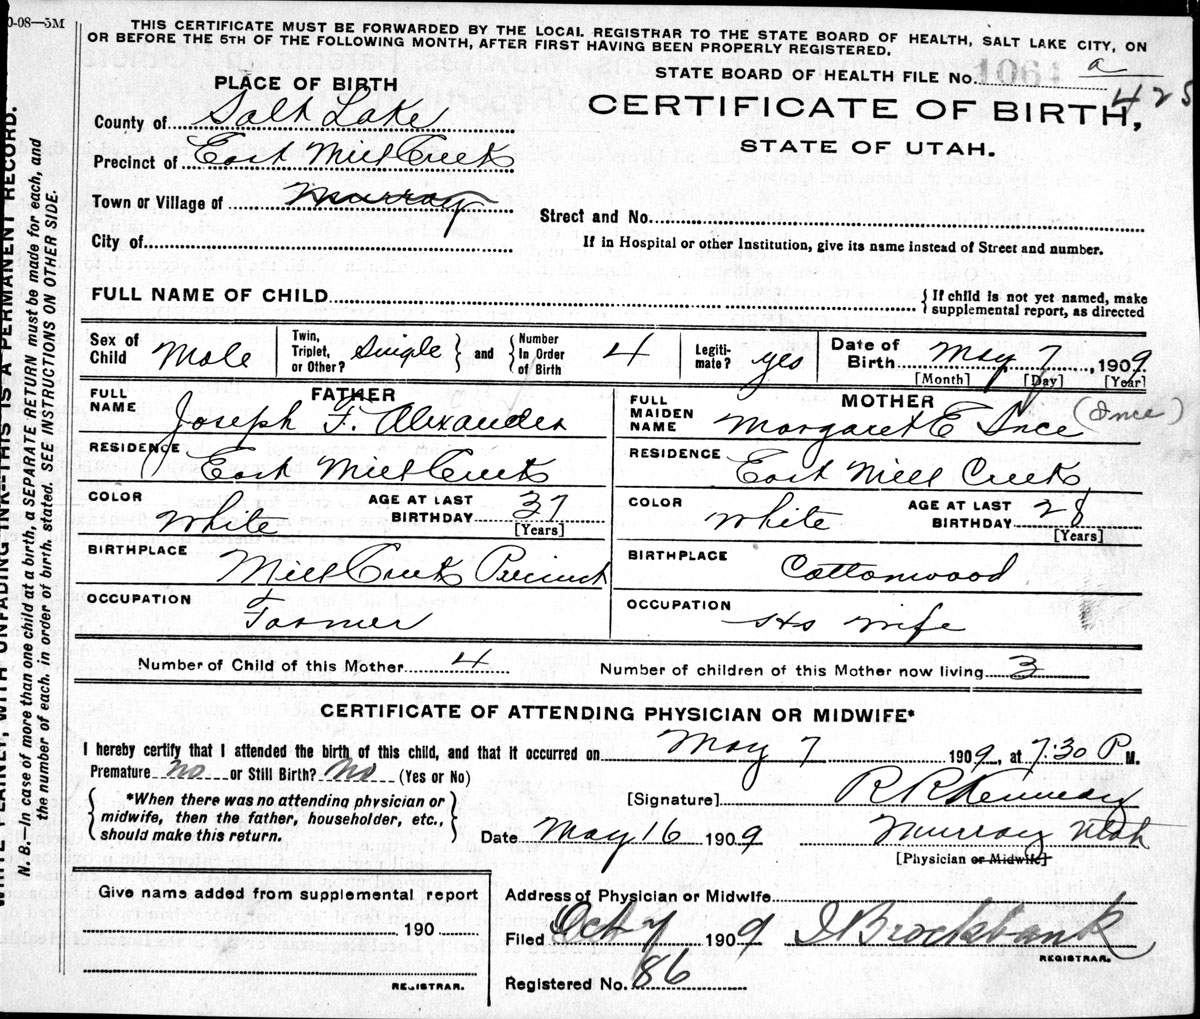 0-08—5M
THIS CERTIFICATE MUST BE FORWARDED BY THE LOCAL REGISTRAR TO THE STATE BOARD OF HEALTH, SALT LAKE CITY, ON
OR BEFORE THE 5TH OF THE FOLLOWING MONTH, AFTER FIRST HAVING BEEN PROPERLY REGISTERED.
PLACE OF BIRTH
STATE BOARD OF HEALTH FILE NO. 1061 a
425
County of Salt Lake
CERTIFICATE OF BIRTH,
STATE OF UTAH.
Precinct of East Mill Creek
Town or Village of Murray
Street and No.
City of
If in Hospital or other Institution, give its name instead of Street and number.
FULL NAME OF CHILD
{ If child is not yet named, make
supplemental report, as directed
Sex of Child Male
Twin, Triplet, or Other? Single } and { Number In Order of Birth 4
Legiti-mate? yes
Date of Birth May 7, 1909
[Month] [Day] [Year]
FATHER
FULL NAME Joseph F. Alexander
MOTHER
FULL MAIDEN NAME Margaret E Ince (Ince)
RESIDENCE East Mill Creek
RESIDENCE East Mill Creek
COLOR White AGE AT LAST BIRTHDAY 37 [Years]
COLOR White AGE AT LAST BIRTHDAY 28 [Years]
BIRTHPLACE Mill Creek Precinct
BIRTHPLACE Cottonwood
OCCUPATION Farmer
OCCUPATION Hs wife
Number of Child of this Mother 4
Number of children of this Mother now living 3
CERTIFICATE OF ATTENDING PHYSICIAN OR MIDWIFE*
I hereby certify that I attended the birth of this child, and that it occurred on May 7 1909, at 7:30 P M.
Premature no or Still Birth? No (Yes or No)
{ *When there was no attending physician or
midwife, then the father, householder, etc.,
should make this return. }
[Signature] R R Kennedy
Date May 16 1909 Murray Utah
[Physician or Midwife]
Give name added from supplemental report
190
REGISTRAR.
Address of Physician or Midwife
Filed Oct 7 1909 Brockbank
REGISTRAR.
Registered No. 86
WRITE PLAINLY, WITH UNFADING INK--THIS IS A PERMANENT RECORD.
N. B.—In case of more than one child at a birth, a SEPARATE RETURN must be made for each, and
the number of each, in order of birth, stated. SEE INSTRUCTIONS ON OTHER SIDE.